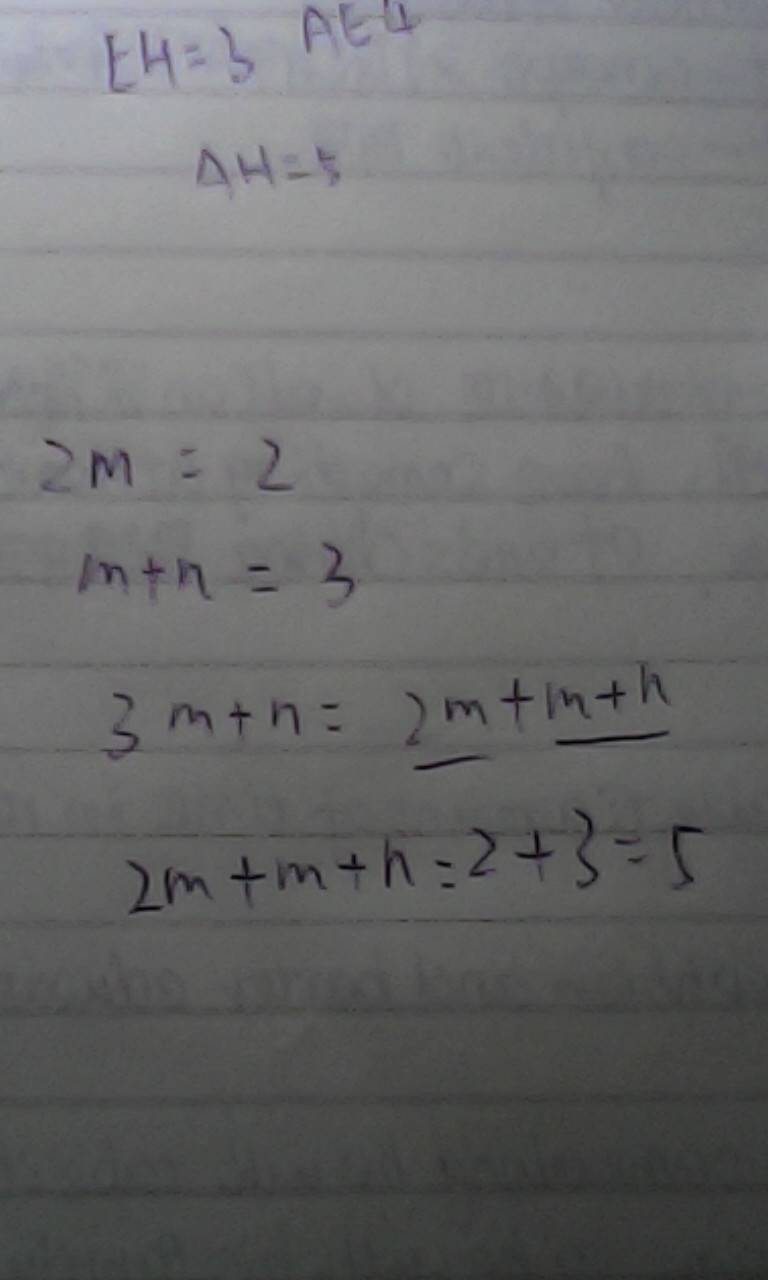 EH=3 AE4
AH=5
2m = 2
m+n = 3
3m+n= 2m+m+n
2m+m+n=2+3=5